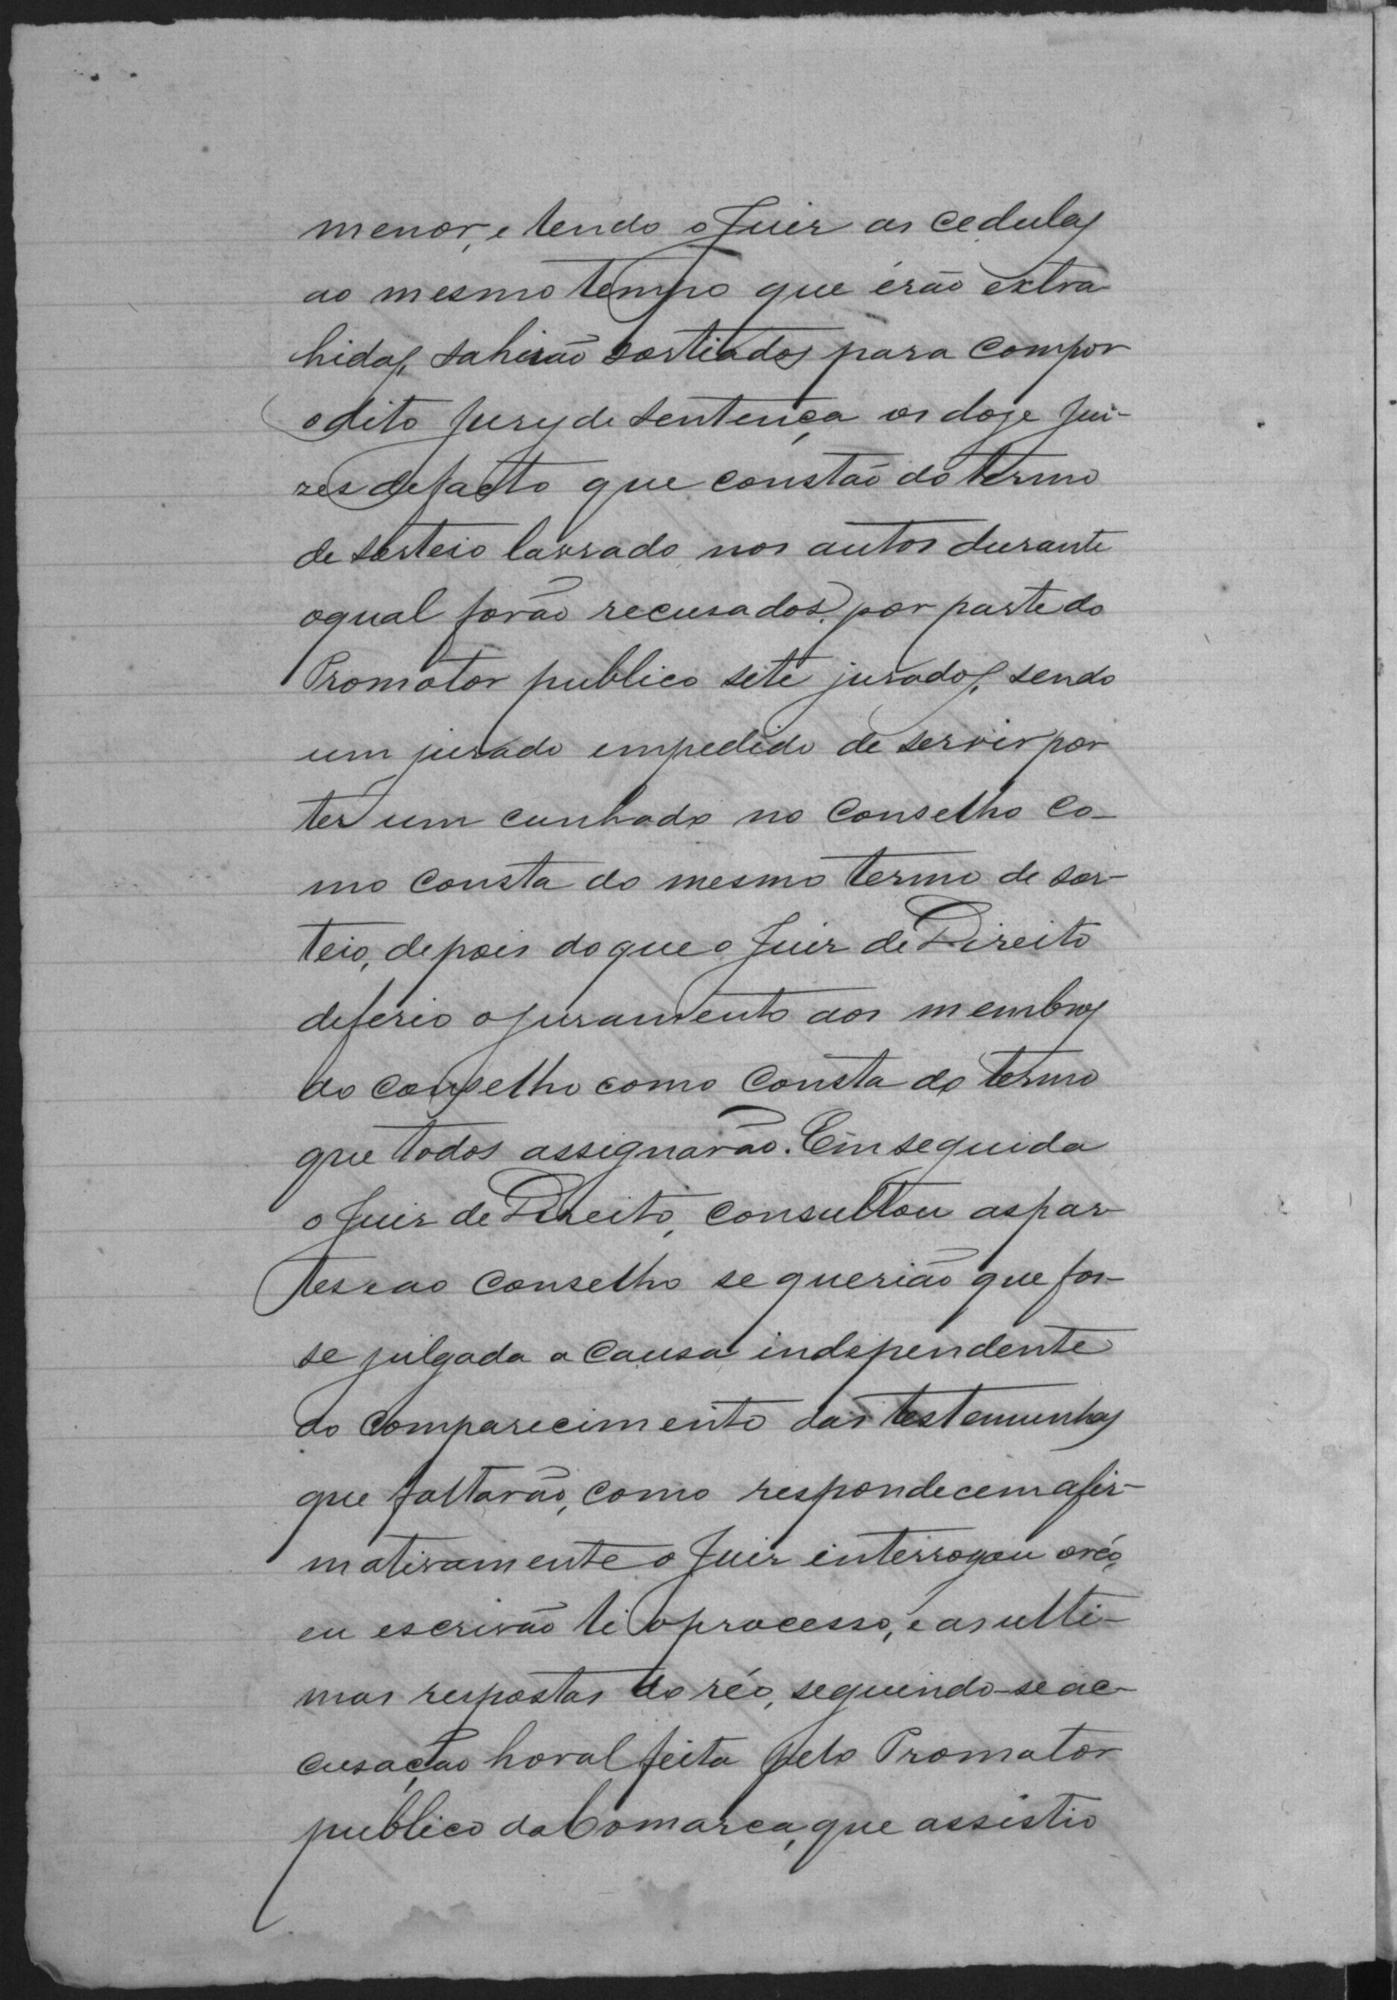 menor, e tendo o Juiz as cedulas
ao mesmo tempo que érão extra
hidas, sahirão sortiados para compor
o dito Jury de sentença os doze Jui-
zes de facto que constão do termo
de sorteio lavrado nos autos durante
o qual forão recusados por parte do
Promotor publico sete jurados, sendo
um jurado empedido de servir por
ter um cunhado no Conselho Co-
mo consta do mesmo termo de sor-
teio, depois do que o Juiz de Direito
deferio o juramento aos membros
do conselho como Consta do termo
que todos assignarão. Em seguida
o Juiz de Direito, consultou as par-
tes e ao Conselho se querião que fos-
se julgada a Causa independente
do Comparecimento das testemunhas
que faltarão, como respondecem afir-
mativamente o Juiz interrogou o réo,
eu escrivão li o processo, e as ulti-
mas respostas do réo, seguindo-se a ac-
cusação horal feita pelo Promotor
publico da Comarca, que assistio